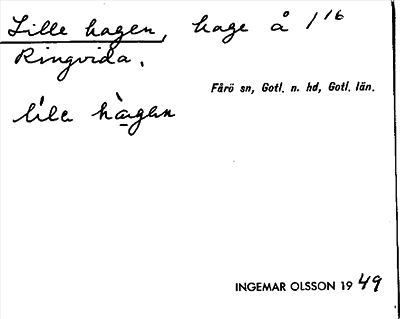 Lille hagen, hage å 1/16
Ringvida.
Fårö sn, Gotl. n. hd, Gotl. län.
lílɛ hàgɛn
INGEMAR OLSSON 1949